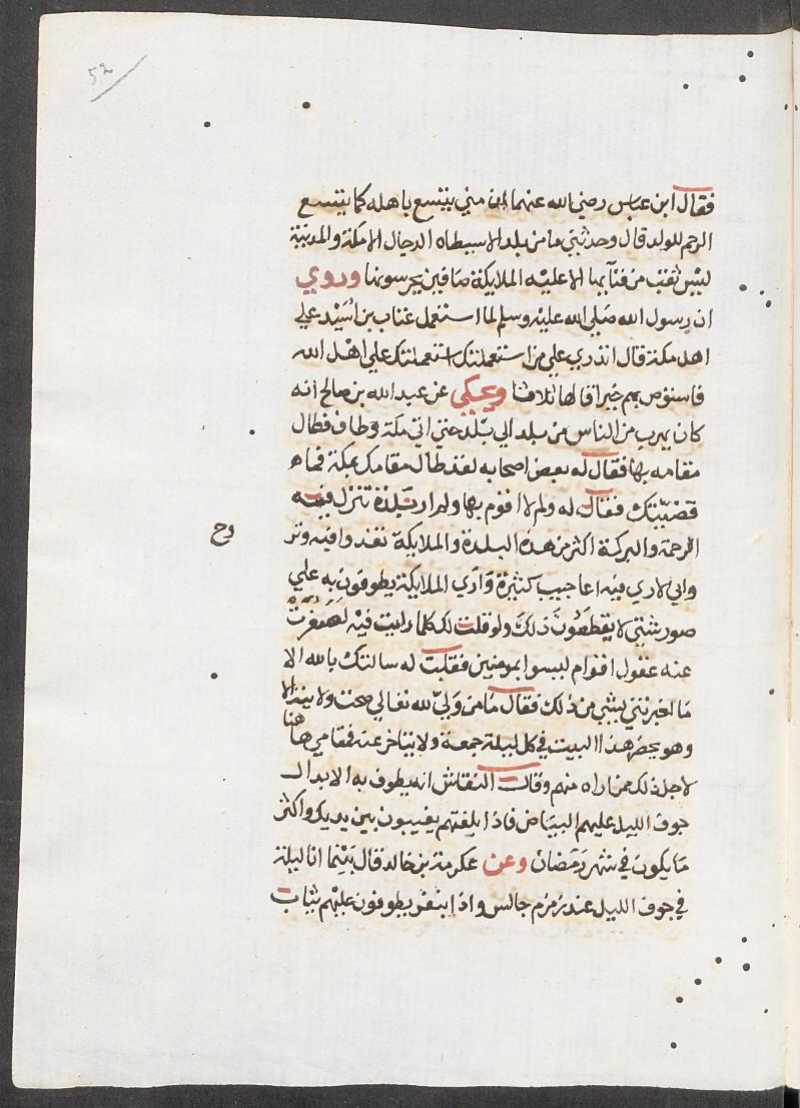 52
فقال ابن عباس رضي الله عنهما ان مني يتسع باهله كما يتسع
الرحم للولد قال وحدثني ما من بلد الا سيطاه الدجال الا مكة والمدينة
ليس نقب من انقابها الا عليه الملايكة صافين يحرسونها وروي
ان رسول الله صلي الله عليه وسلم لما استعمل عتاب بن اسيد علي
اهل مكة قال اتدري علي من استعملتك استعملتك علي اهل الله
فاستوص بهم خيرا قالها ثلاثا وحكي عن عبد الله بن صالح انه
كان يهرب من الناس من بلد الي بلد حتي اتي مكة وطاف فطال
مقامه بها فقال له بعض اصحابه لقد طال مقامك بمكة فما
قضيتك فقال له ولم لا اقوم بها ولم ار بلدة تنزل فيه
الرحمة والبركة اكثر من هذه البلدة والملايكة تغدوا فيه وتر
وح
واني لاري فيه اعاجيب كثيرة واري الملايكة يطوفون به علي
صور شتي لا يقطعون ذلك ولو قلت لك كلما رايت فيه لصغرت
عنه عقول اقوام ليسوا بمومنين فقلت له سالتك بالله الا
ما اخبرتني بشي من ذلك فقال ما من ولي لله تعالي صحت ولايته الا
وهو يحضر هذا البيت في كل ليلة جمعة ولا يتاخر عنه فمقامي هاهنا
لاجل ذلك من اراه منهم وقال النقاش انه يطوف به الابدال
جوف الليل عليهم البياض فاذا بلغتهم يغيبون بين يديك واكثر
ما يكون في شهر رمضان وعن عكرمة بن خالد قال بينما انا ليلة
في جوف الليل عند زمزم جالس واذا بنفر يطوفون عليهم ثياب